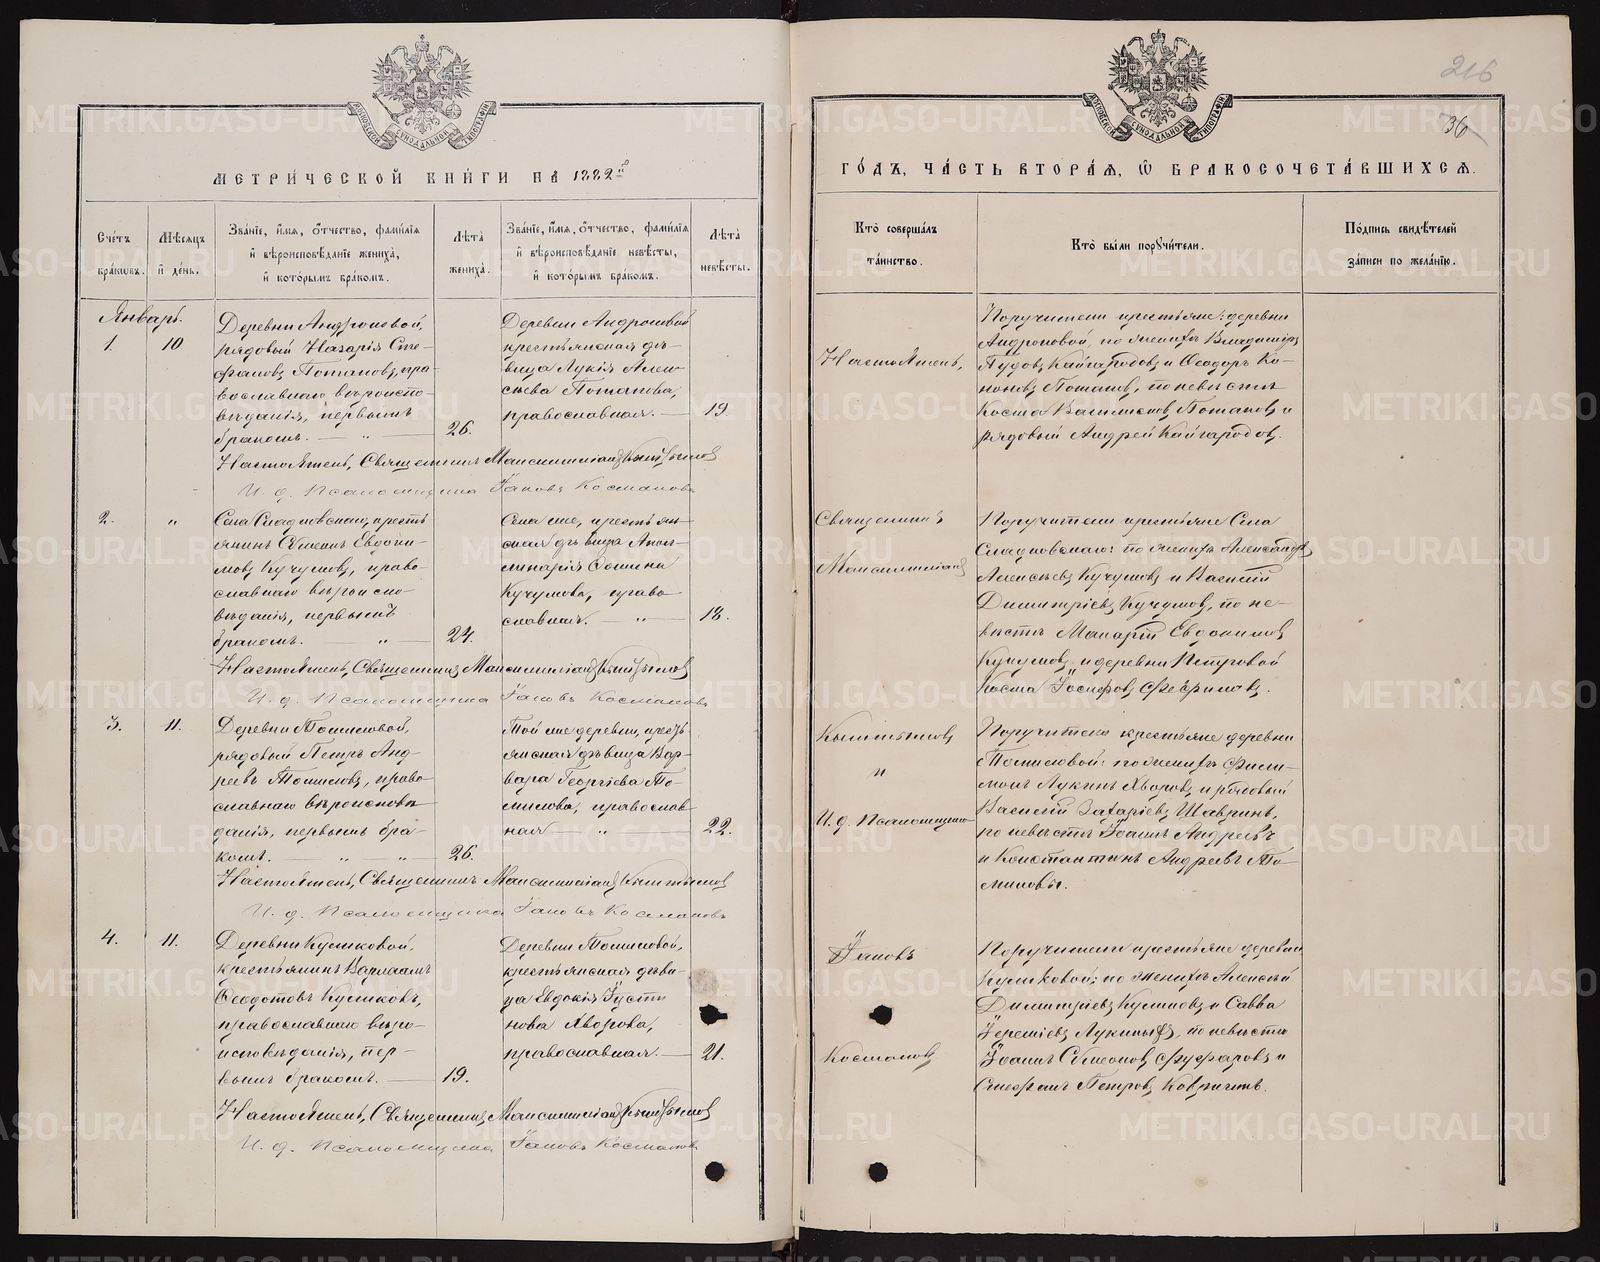 МЕТРИ́ЧЕСКОЙ КНИ́ГИ НА 1882й
Сче́тъ бра́ковъ.
Мѣсяцъ и де́нь.
Зва́ніе, и́мя, о́тчество, фами́лія и вѣроисповѣданіе жениха̀, и кото́рымъ бра́комъ.
Лѣта̀ жениха̀.
Зва́ніе, и́мя, о́тчество, фами́лія и вѣроисповѣданіе невѣсты, и кото́рымъ бра́комъ.
Лѣта̀ невѣсты.
Январь.
1.
10
Деревни Андроновой,
рядовый Назарій Сте-
фановъ Потаповъ, пра-
вославнаго вѣроиспо-
вѣданія, первымъ
бракомъ. — „ —
26.
Деревни Андроновой
крестьянская дѣ-
вица Лукія Алек-
сѣева Потапова,
православная. —
19.
Настоятель, Священникъ Максимиліанъ
И. д. Псаломщика Іаковъ Космаковъ
2.
„
Села Сладковскаго, кресть
янинъ Сѵмеонъ Евдоки-
мовъ Кучумовъ, право-
славнаго вѣроиспо-
вѣданія, первымъ
бракомъ. „ —
24.
Села же, крестьян-
ская дѣвица Апол-
линарія Ѳомина
Кучумова, право-
славная. — „ —
18.
Настоятель, Священникъ Максимиліанъ
И. д. Псаломщика Іаковъ Космаковъ
3.
11.
Деревни Томиловой,
рядовый Петръ Анд-
реевъ Томиловъ, право-
славнаго вѣроисповѣ-
данія, первымъ бра-
комъ. — „ — „ —
26.
Той же деревни, кресть
янская дѣвица Вар-
вара Георгіева То-
милова, православ
ная — „ —
22.
Настоятель, Священникъ Максимиліанъ
И. д. Псаломщика Іаковъ Космаковъ
4.
11.
Деревни Куликовой,
крестьянинъ Варлаамъ
Ѳеодотовъ Куликовъ,
православнаго вѣро-
исповѣданія, пер-
вымъ бракомъ. —
19.
Деревни Томиловой,
крестьянская дѣви-
ца Евдокія Іусти
нова Хворова,
православная. —
21.
Настоятель, Священникъ Максимиліанъ
И. д. Псаломщика Іаковъ Космаковъ
216
36
ГО́ДЪ, ЧА́СТЬ ВТОРА́Я, Ѡ БРАКОСОЧЕТА́ВШИХСЯ.
Кто̀ соверша́лъ та́инство.
Кто̀ бы́ли поручи́тели.
По́дпись свидѣтелей за́писи по жела́нію.
Настоятель,
Священникъ
Максимиліанъ
и
И. д. Псаломщика
Іаковъ
Космаковъ
Поручители крестьяне: деревни
Андроновой, по женихѣ Владиміръ
Пудовъ Кайгородовъ и Ѳеодоръ Ко-
ноновъ Потаповъ, по невѣстѣ
Косма Василисковъ Потаповъ и
рядовый Андрей Кайгородовъ.
Поручители крестьяне Села
Сладковскаго: по женихѣ Александръ
Алексѣевъ Кучумовъ и Василій
Димитріевъ Кучумовъ, по не-
вѣстѣ Макарій Евдокимовъ
Кучумовъ и деревни
Косма Іосифовъ
Поручители крестьяне деревни
Томиловой: по женихѣ Фили-
монъ Лукинъ Хворовъ и рядовый
Василій Захаріевъ Шавринъ,
по невѣстѣ Іоаннъ Андреевъ
и Константинъ Андреевъ То-
миловы.
Поручители крестьяне деревни
Куликовой: по женихѣ Алексѣй
Димитріевъ Куликовъ и Савва
Іереміевъ Лукиныхъ, по невѣстѣ
Іоаннъ Сѵмеоновъ и
Стефанъ Петровъ
METRIKI.GASO-URAL.RU